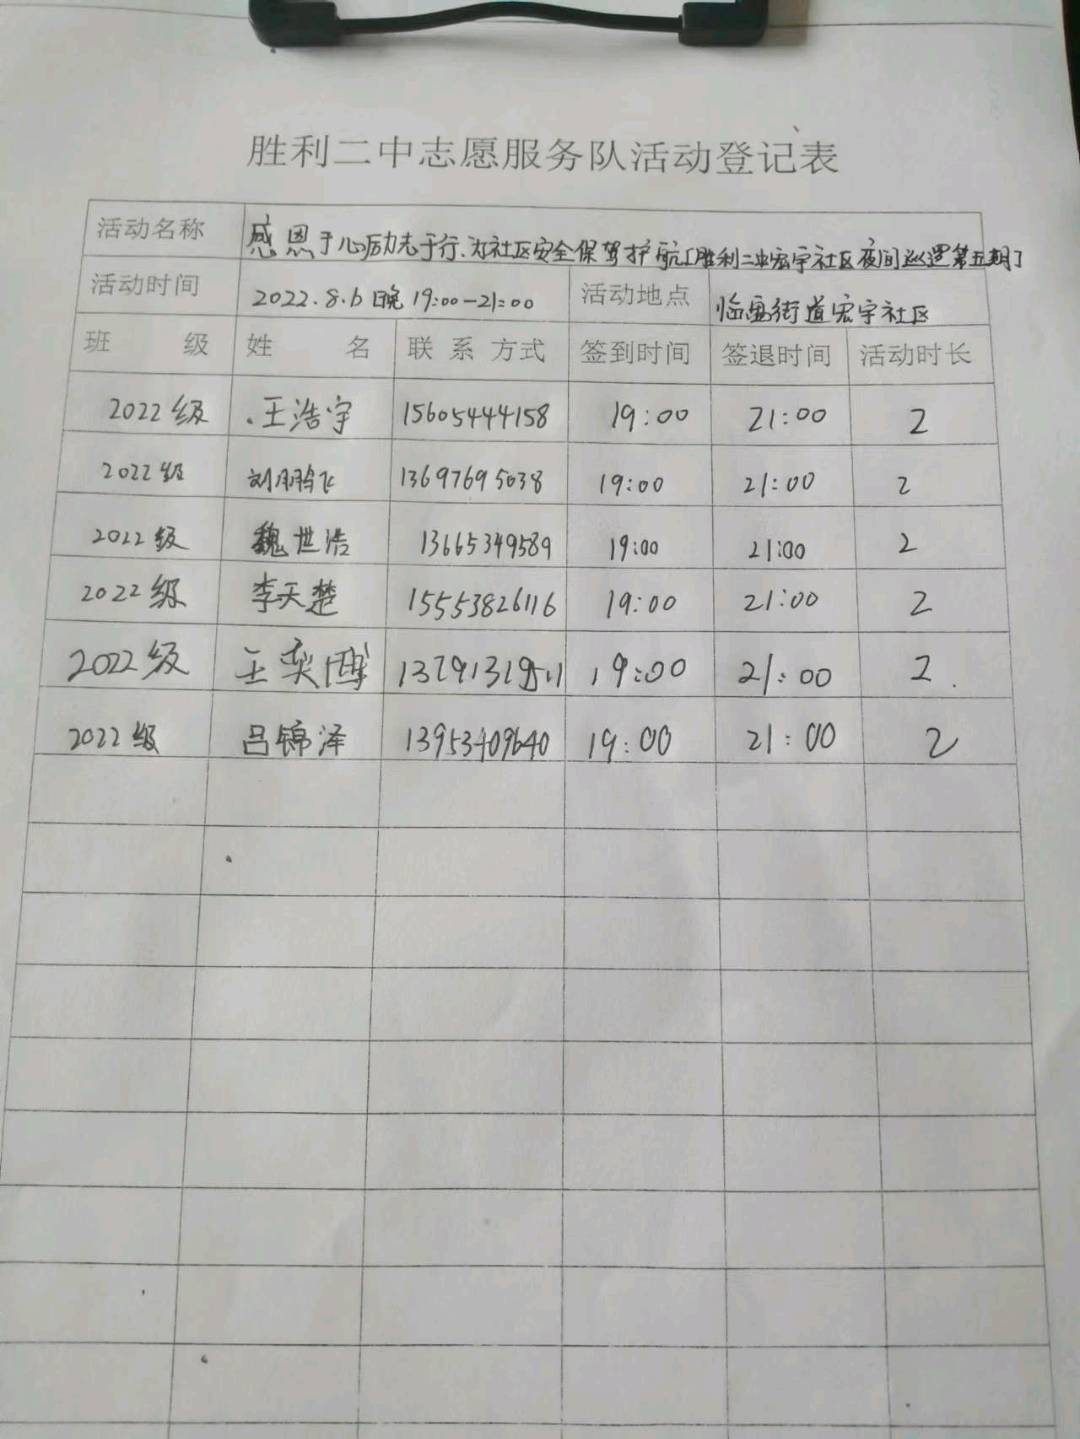 胜利二中志愿服务队活动登记表
活动名称 感恩于心励志于行、为社区安全保驾护航[胜利二中宏宇社区夜间巡逻第五期]
活动时间 2022.8.6晚 19:00-21:00 活动地点 临盘街道宏宇社区
班 级 姓 名 联系方式 签到时间 签退时间 活动时长
2022级 王浩宇 15605444158 19:00 21:00 2
2022级 刘鹏飞 13697695038 19:00 21:00 2
2022级 魏世浩 13665349589 19:00 21:00 2
2022级 李天楚 15553826116 19:00 21:00 2
2022级 王奕博 19:00 21:00 2
2022级 吕锦泽 13953409640 19:00 21:00 2